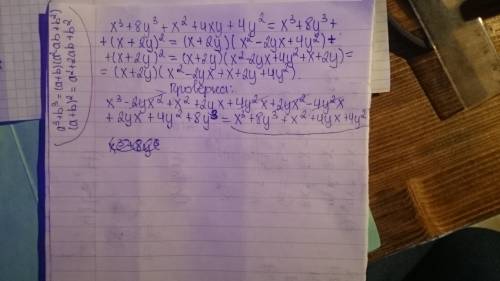 x³+8y³+x²+4xy+4y²=x³+8y³+
+(x+2y)²=(x+2y)(x²-2yx+4y²)+
+(x+2y)²=(x+2y)(x²-2yx+4y²+x+2y)=
=(x+2y)(x²-2yx+x+2y+4y²)
Проверка:
x³-2yx²+x²+2yx+4y²x+2yx²-4y²x
+2yx+4y²+8y³=x³+8y³+x²+4yx+4y²
x³+8y³
a³+b³=(a+b)(a²-ab+b²)
(a+b)²=a²+2ab+b²